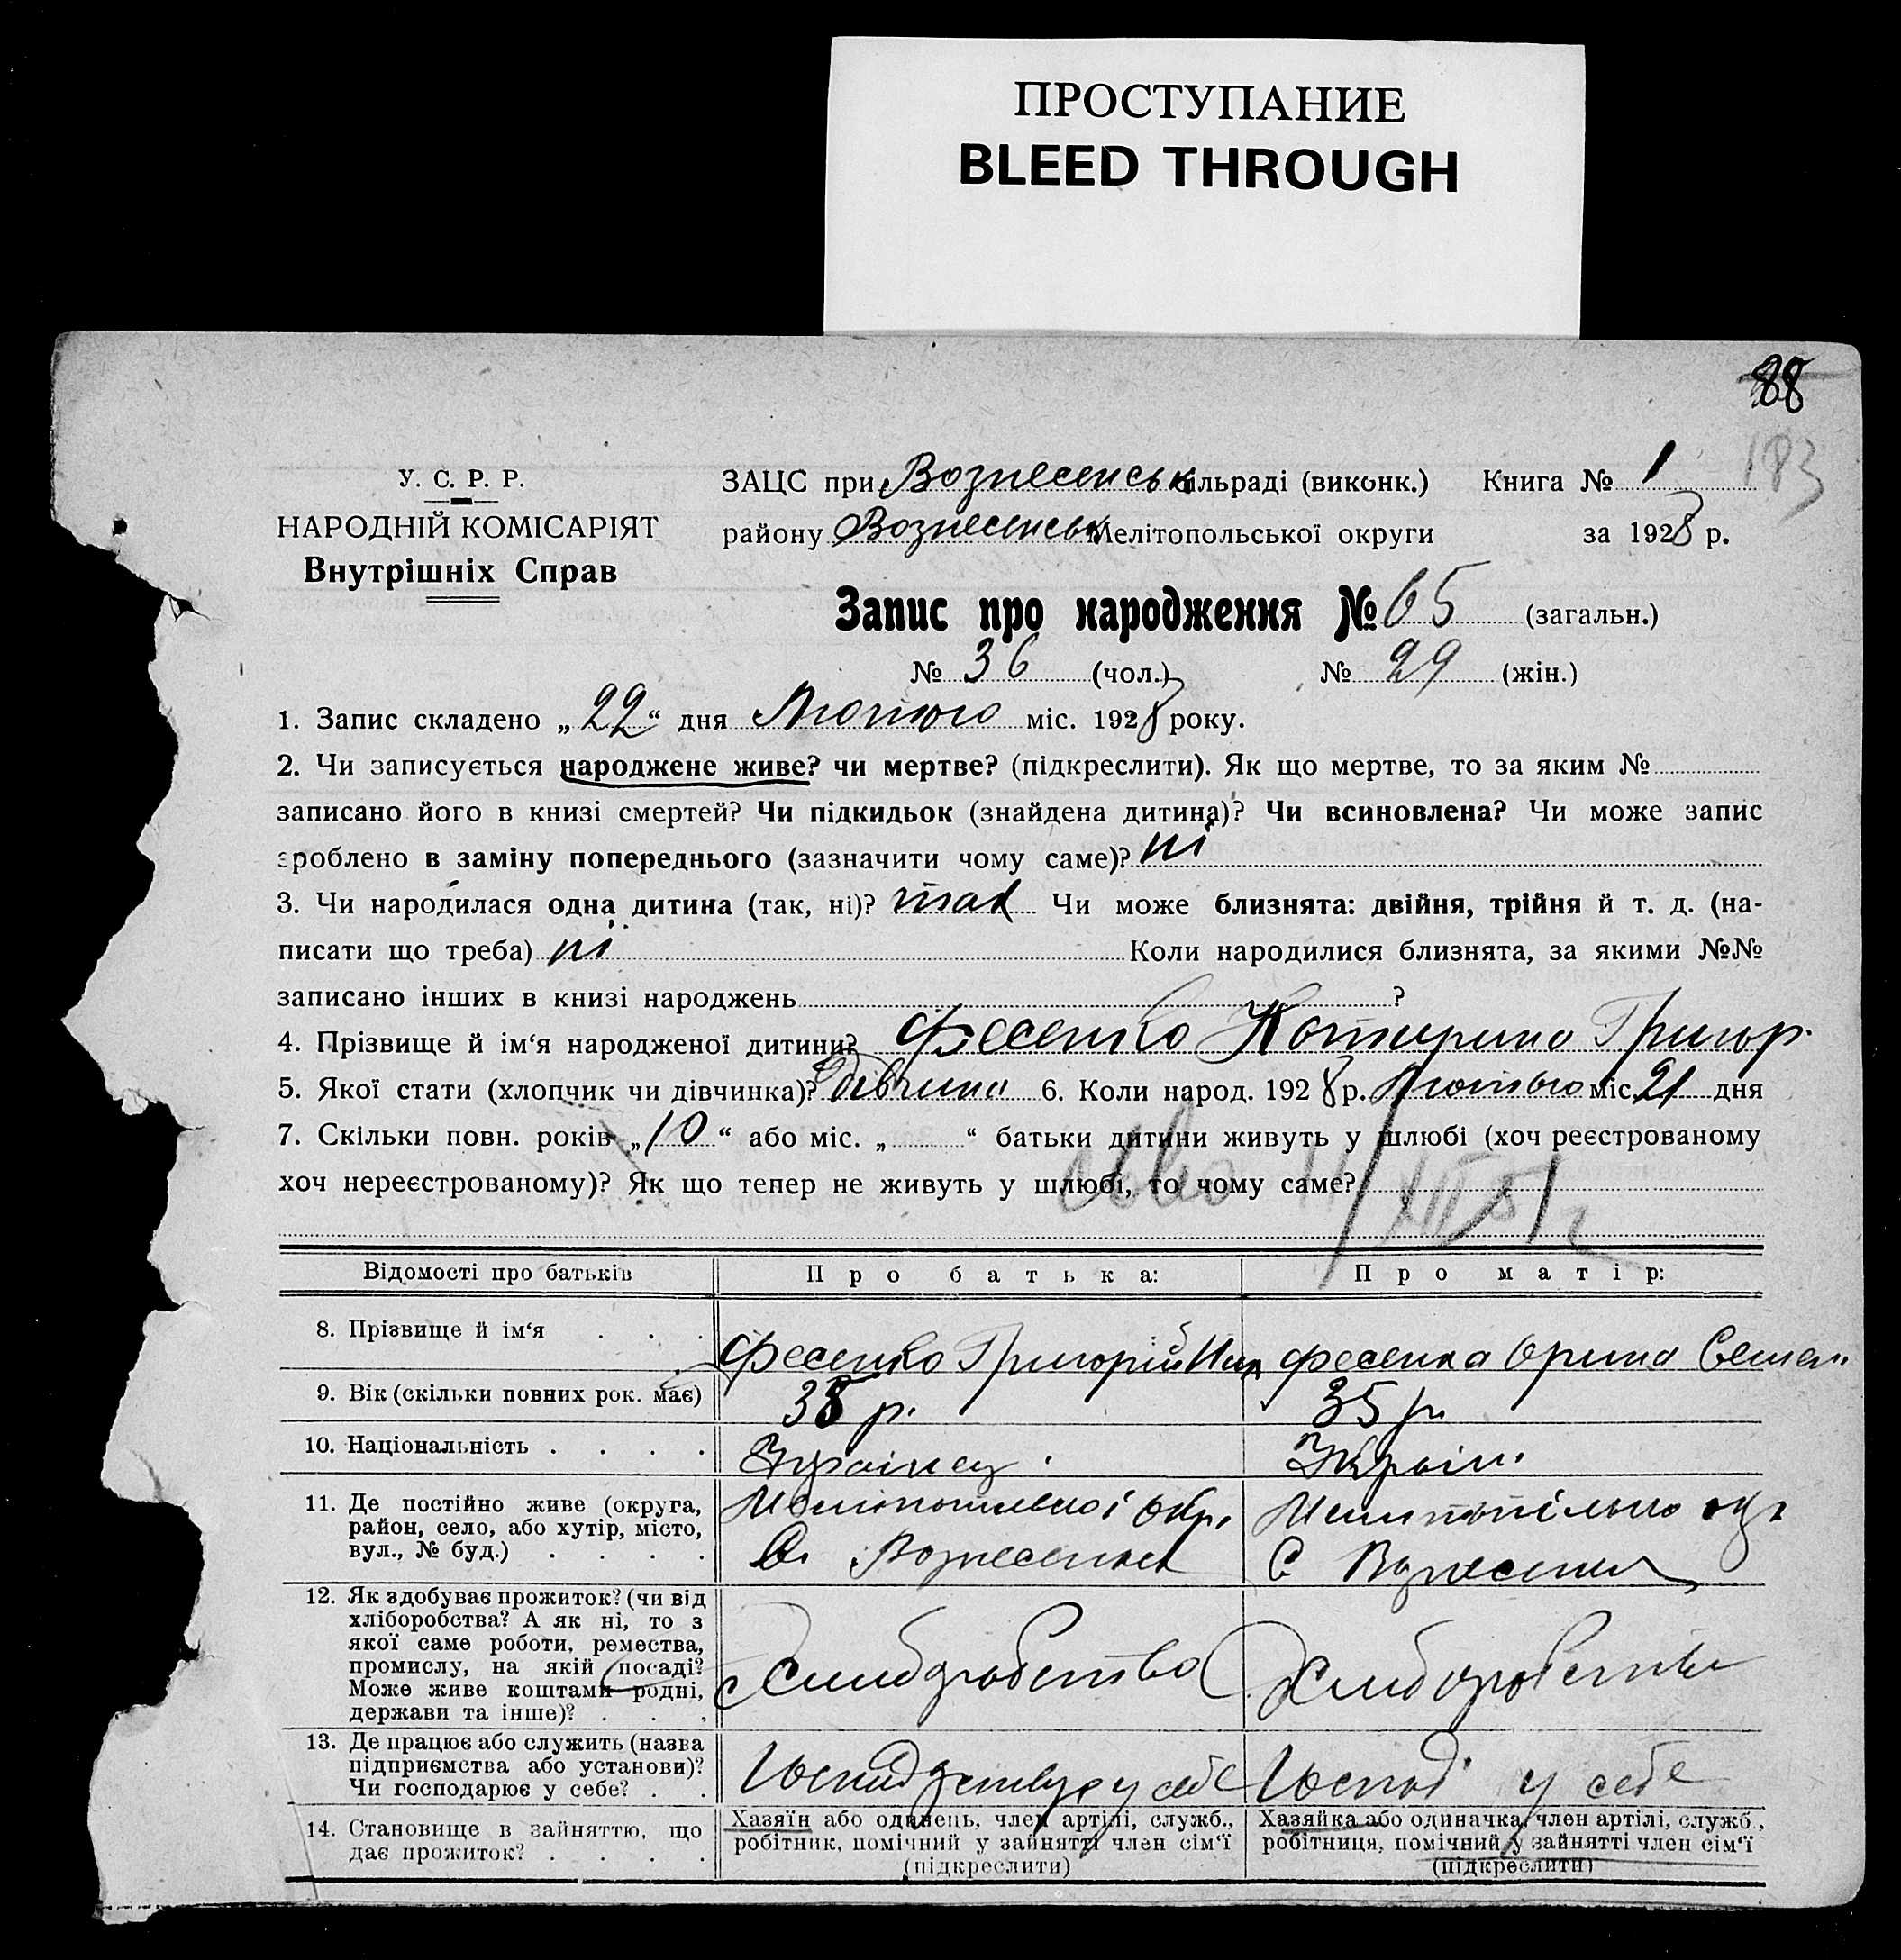 ПРОСТУПАНИЕ
BLEED THROUGH
88
183
У. С. Р. Р.
НАРОДНІЙ КОМІСАРІЯТ
Внутрішніх Справ
ЗАЦС при Вознесенськ сільраді (виконк.) Книга № 1
району Вознесенськ Мелітопольської округи за 1928 р.
Запис про народження № 65 (загальн.)
№ 36 (чол.) № 29 (жін.)
1. Запис складено „22“ дня Лютого міс. 1928 року.
2. Чи записується народжене живе? чи мертве? (підкреслити). Як що мертве, то за яким №
записано його в книзі смертей? Чи підкидьок (знайдена дитина)? Чи всиновлена? Чи може запис
зроблено в заміну попереднього (зазначити чому саме)? ні
3. Чи народилася одна дитина (так, ні)? так Чи може близнята: двійня, трійня й т. д. (на-
писати що треба) ні Коли народилися близнята, за якими №№
записано інших в книзі народжень ?
4. Прізвище й ім‘я народженої дитини? Фесенко Катирина Григор.
5. Якої стати (хлопчик чи дівчинка)? дівчина 6. Коли народ. 1928 р. Лютого міс. 21 дня
7. Скільки повн. років „10“ або міс. „ “ батьки дитини живуть у шлюбі (хоч реєстрованому
хоч нереєстрованому)? Як що тепер не живуть у шлюбі, то чому саме?
Відомості про батьків Про батька: Про матір:
8. Прізвище й ім‘я . . . Фесенко Григорій Фесенка Орина Семен.
9. Вік (скільки повних рок. має) 38 р. 35 р.
10. Національність . . . . Українец. Україн.
11. Де постійно живе (округа,
район, село, або хутір, місто,
вул., № буд.) . . . .
Мелітопільської окр.
С. Вознесенка
Мелитопільско окр
С Вознесенка
12. Як здобуває прожиток? (чи від
хліборобства? А як ні, то з
якої саме роботи, ремества,
промислу, на якій посаді?
Може живе коштами родні,
держави та інше)? . . .
Хлиборобство
Хлиборобство
13. Де працює або служить (назва
підприємства або установи)?
Чи господарює у себе? . .
у себе
Господ у себе
14. Становище в зайняттю, що
дає прожиток? . . . .
Хазяїн або одинець, член артілі, служб.,
робітник, помічний у зайнятті член сім‘ї
(підкреслити)
Хазяйка або одиначка, член артілі, служб.,
робітниця, помічний у зайнятті член сім‘ї
(підкреслити)